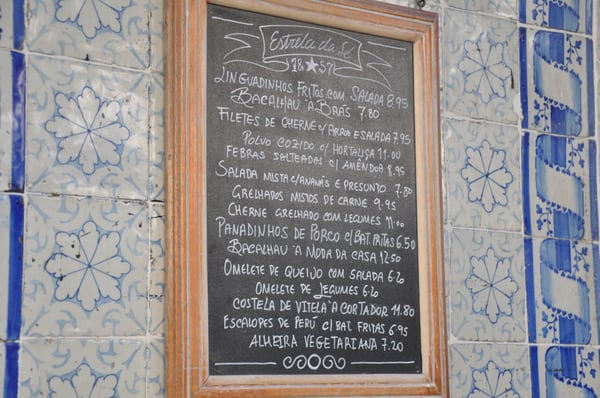 Estrela da Sé
18★57
LINGUADINHOS FRITOS COM SALADA 8.95
BACALHAU À BRÁS 7.80
FILETES DE CHERNE C/ ARROZ E SALADA 7.95
POLVO COZIDO C/ HORTALIÇA 11.00
FEBRAS SALTEADAS C/ AMÊNDOA 8.95
SALADA MISTA C/ ANANÁS E PRESUNTO 7.80
GRELHADOS MISTOS DE CARNE 9.95
CHERNE GRELHADO COM LEGUMES 11.00
PANADINHOS DE PORCO C/ BAT. FRITAS 6.50
BACALHAU À MODA DA CASA 12.50
OMELETE DE QUEIJO COM SALADA 6.20
OMELETE DE LEGUMES 6.20
COSTELA DE VITELA À CORTADOR 11.80
ESCALOPES DE PERÚ C/ BAT. FRITAS 6.95
ALHEIRA VEGETARIANA 7.20